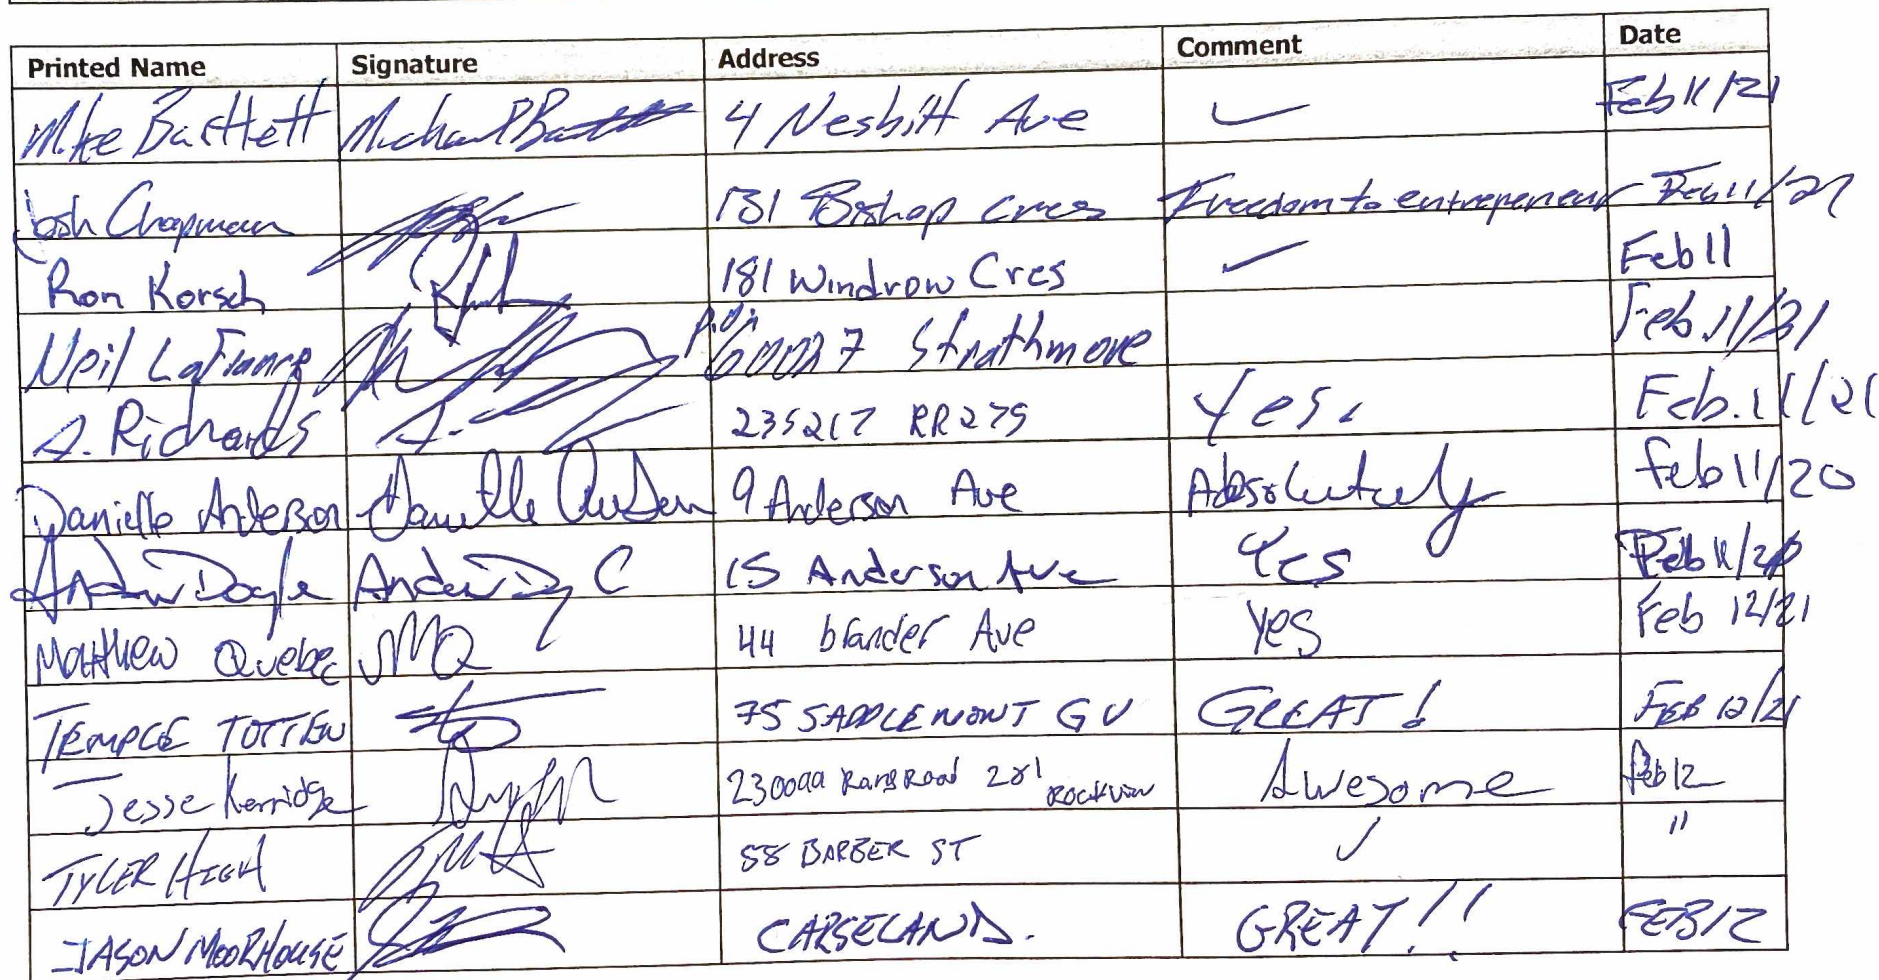 Printed Name Signature Address Comment Date
Mike Bartlett Michael P Bartlett 4 Nesbitt Ave ✓ Feb 11/21
Josh Chapman 131 Bishop cres Freedom to entrepreneur Feb 11/21
Ron Korsch 181 Windrow Cres ✓ Feb 11
Neil LaFrance Strathmore Feb.11/21
A. Richards 235217 RR275 Yes. Feb.11/21
Danielle Anderson 9 Anderson Ave Absolutely feb 11/20
Doyle 15 Anderson Ave Yes Feb 11/20
Matthew Quebec MQ 44 brander Ave yes Feb 12/21
TEMPLE TOTTEN 75 SADDLEMONT GV GREAT! FEB 12/21
Jesse Kerridge 230099 Rang Road 281 Rockview Awesome Feb 12
TYLER HIGH 58 BARBER ST ✓ "
JASON MOORHOUSE CARSELAND. GREAT!! FEB 12